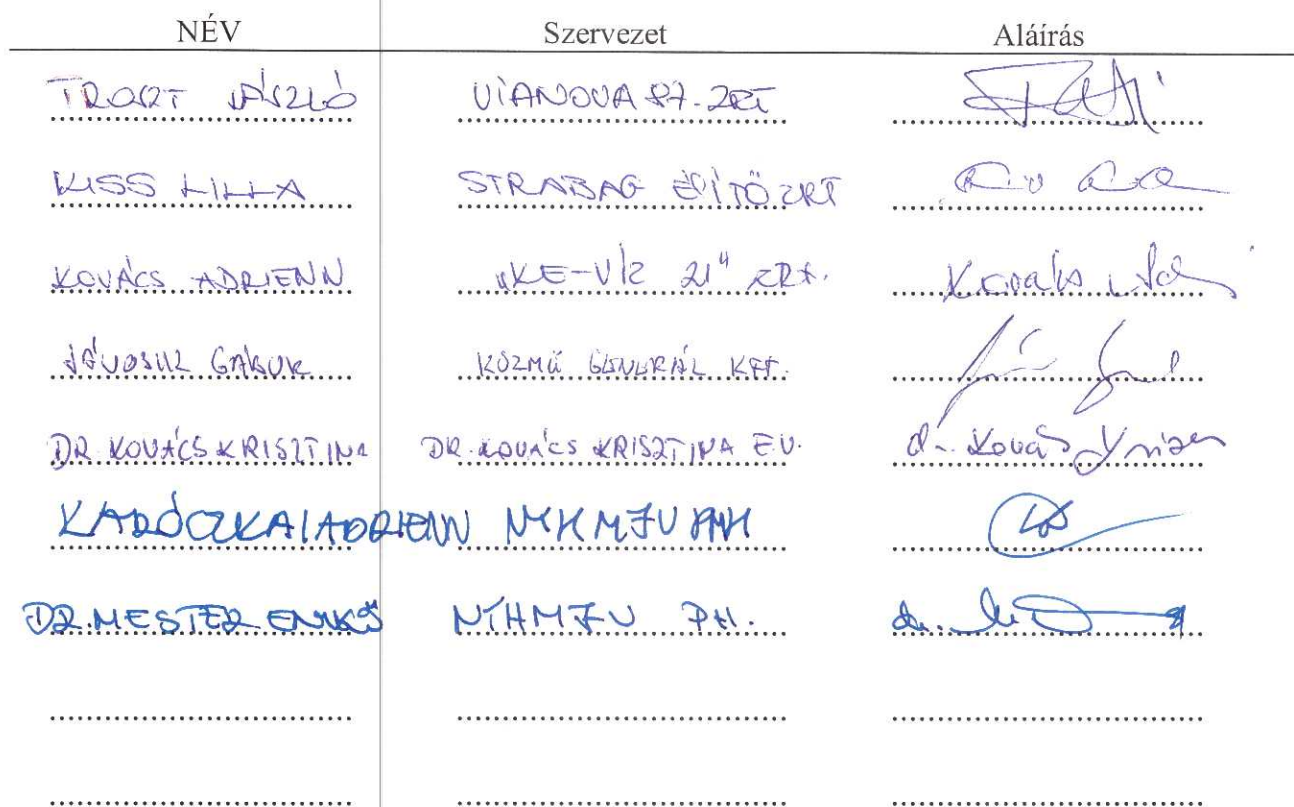 NÉV Szervezet Aláírás
TROSZT LÁSZLÓ VIANOVA 87. ZRT
KISS LILLA STRABAG ÉPÍTŐ ZRT
KOVÁCS ADRIENN "KE-VÍZ 21" ZRt. Kovács
GÁBOR KÖZMŰ GENERÁL KFT.
DR. KOVÁCS KRISZTINA DR. KOVÁCS KRISZTINA E.V. dr. Kovács
KARÓCZKAI ADRIENN NYHMJV PMH
DR. MESTER ENIKŐ NYHMJV PH. dr.